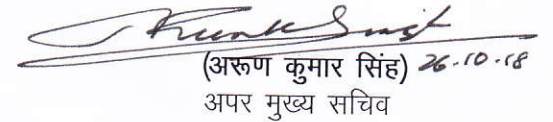 (अरूण कुमार सिंह) 26.10.18
अपर मुख्य सचिव